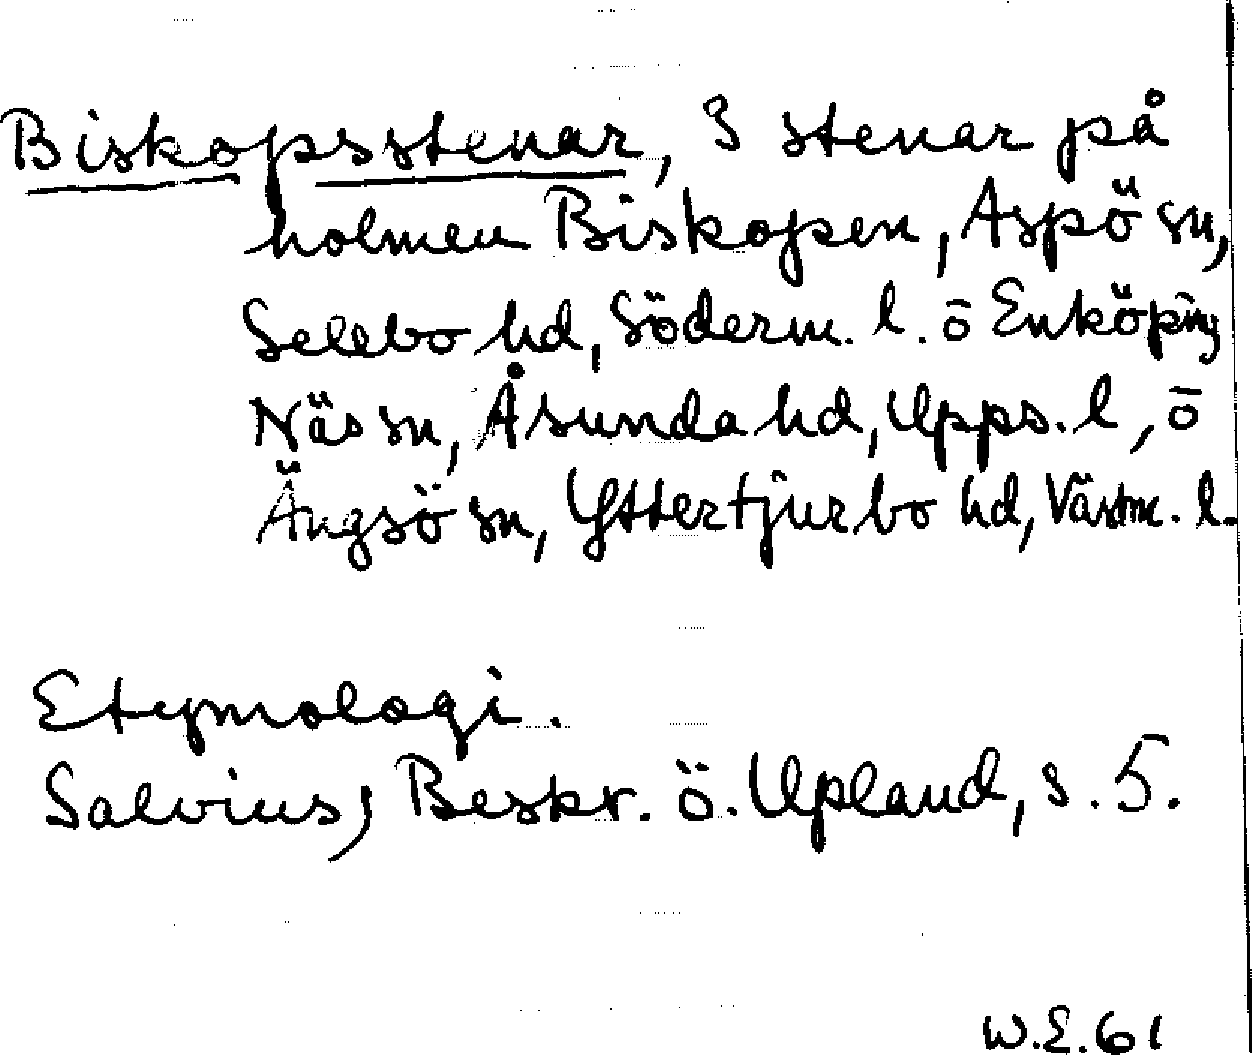 Biskopsstenar, 3 stenar på
holmen Biskopen, Aspö sn,
Selebo hd, Söderm. l. ō Enköping
Näs sn, Åsunda hd, Upps. l, ō
Ängsö sn, Yttertjurbo hd, Västm. l.
Etymologi.
Salvius, Beskr. ö. Upland, s. 5.
W.E.61